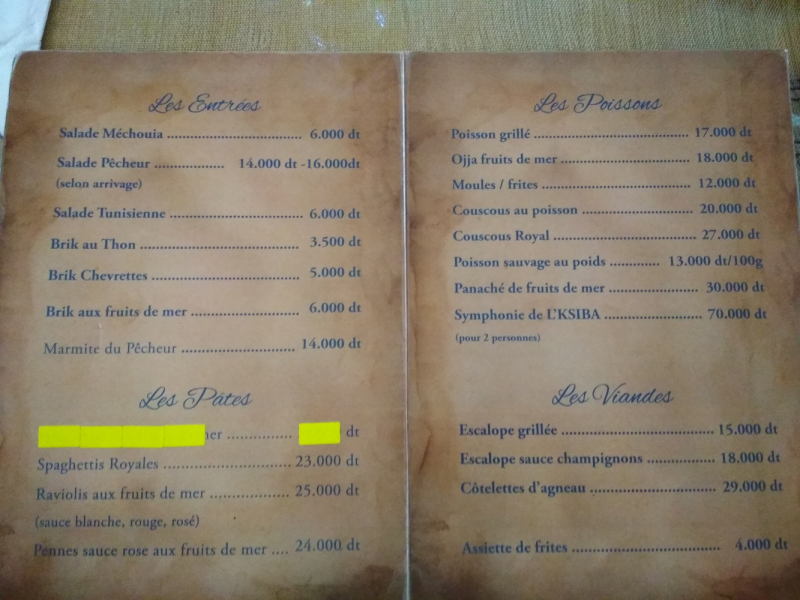 Les Entrées
Salade Méchouia ................................ 6.000 dt
Salade Pêcheur ................. 14.000 dt -16.000dt
(selon arrivage)
Salade Tunisienne ................................ 6.000 dt
Brik au Thon ...................................... 3.500 dt
Brik Chevrettes ................................... 5.000 dt
Brik aux fruits de mer .......................... 6.000 dt
Marmite du Pêcheur ........................... 14.000 dt
Les Pâtes
mer ................ dt
Spaghettis Royales ............................... 23.000 dt
Raviolis aux fruits de mer ................... 25.000 dt
(sauce blanche, rouge, rosé)
Pennes sauce rose aux fruits de mer .... 24.000 dt
Les Poissons
Poisson grillé ..................................... 17.000 dt
Ojja fruits de mer ............................... 18.000 dt
Moules / frites ................................... 12.000 dt
Couscous au poisson ........................... 20.000 dt
Couscous Royal .................................. 27.000 dt
Poisson sauvage au poids ............ 13.000 dt/100g
Panaché de fruits de mer ...................... 30.000 dt
Symphonie de L'KSIBA ....................... 70.000 dt
(pour 2 personnes)
Les Viandes
Escalope grillée ..................................... 15.000 dt
Escalope sauce champignons ................ 18.000 dt
Côtelettes d'agneau .............................. 29.000 dt
Assiette de frites ................................... 4.000 dt